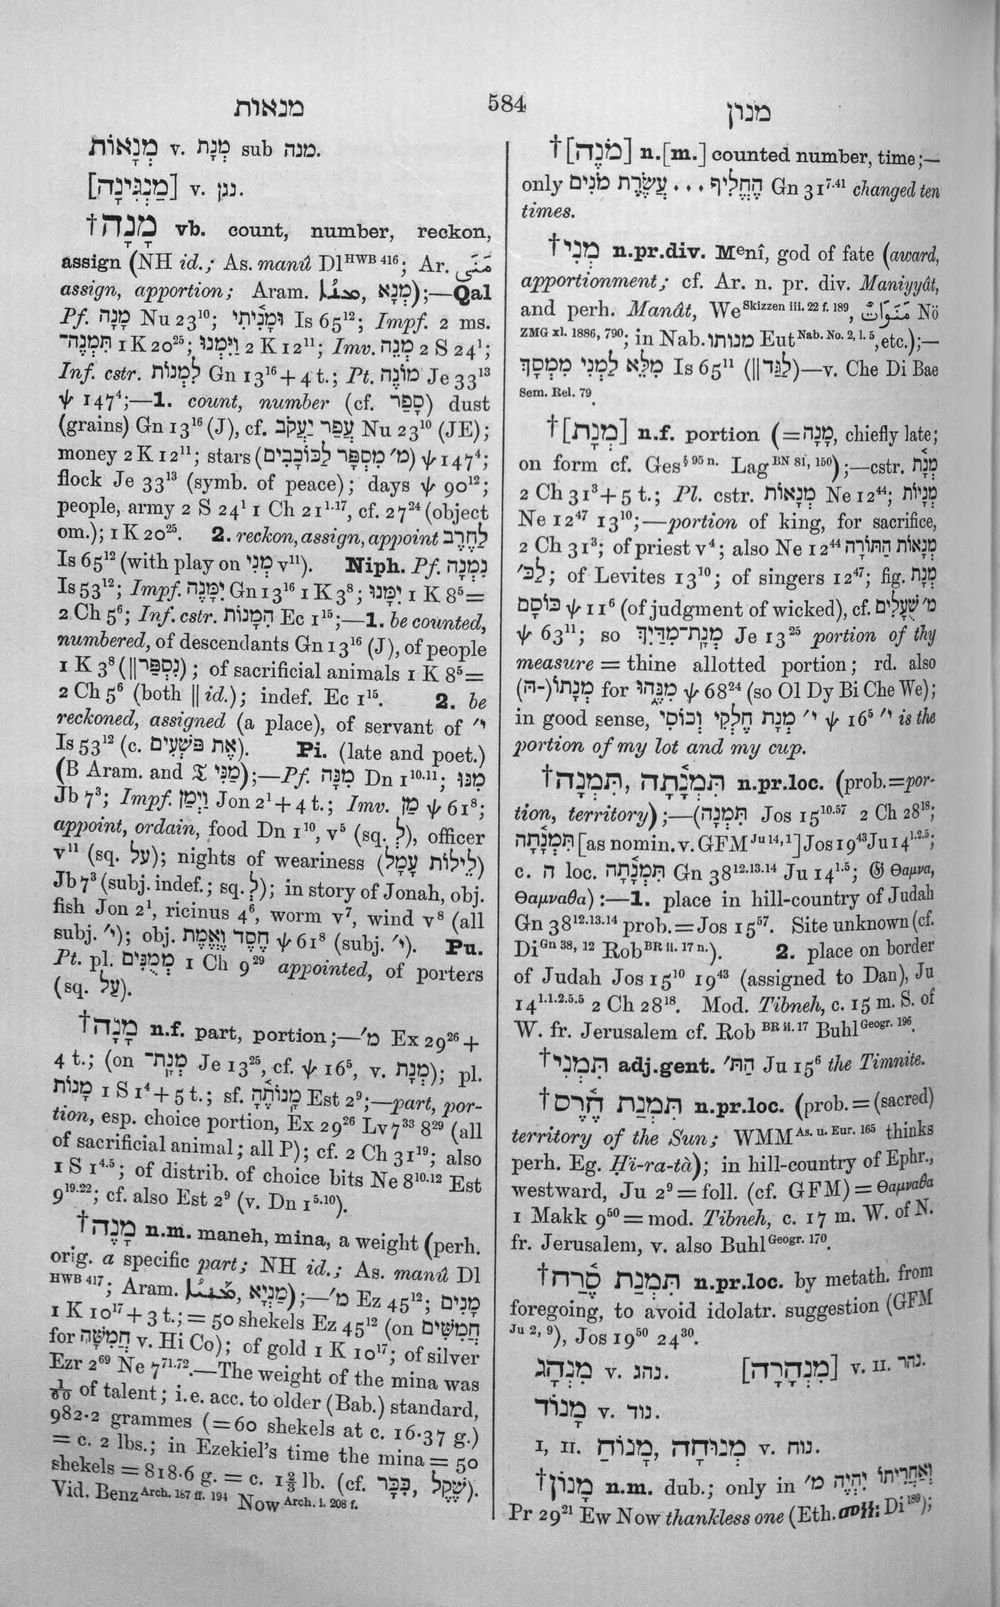 מנאות
584
מנון
מְנָאוֹת v. מְנָת sub מנה.
[מַנְגִּינָה] v. נגן.
†מָנָה vb. count, number, reckon,
assign (NH id.; As. manû Dl HWB 416; Ar.
assign, apportion; Aram. מְנָא);—Qal
Pf. מָנָה Nu 23¹⁰; וּמָנִיתִי Is 65¹²; Impf. 2 ms.
תִּמְנֶה־ 1 K 20²⁵; וַיִּמְנוּ 2 K 12¹¹; Imv. מְנֵה 2 S 24¹;
Inf. cstr. לִמְנוֹת Gn 13¹⁶ + 4 t.; Pt. מוֹנֶה Je 33¹³
ψ 147⁴;—1. count, number (cf. סָפַר) dust
(grains) Gn 13¹⁶ (J), cf. עֲפַר יַעֲקֹב Nu 23¹⁰ (JE);
money 2 K 12¹¹; stars (מ׳ מִסְפָּר לַכּוֹכָבִים) ψ 147⁴;
flock Je 33¹³ (symb. of peace); days ψ 90¹²;
people, army 2 S 24¹ 1 Ch 21¹·¹⁷, cf. 27²⁴ (object
om.); 1 K 20²⁵. 2. reckon, assign, appoint לַחֶרֶב
Is 65¹² (with play on מְנִי v¹¹). Niph. Pf. נִמְנָה
Is 53¹²; Impf. יִמָּנֶה Gn 13¹⁶ 1 K 3⁸; יִמָּנוּ 1 K 8⁵ =
2 Ch 5⁶; Inf. cstr. הִמָּנוֹת Ec 1¹⁵;—1. be counted,
numbered, of descendants Gn 13¹⁶ (J), of people
1 K 3⁸ (‖נִסְפַּר); of sacrificial animals 1 K 8⁵ =
2 Ch 5⁶ (both ‖ id.); indef. Ec 1¹⁵. 2. be
reckoned, assigned (a place), of servant of י׳
Is 53¹² (c. אֶת פּשְׁעִים). Pi. (late and poet.)
(B Aram. and 𝔗 מַנִּי);—Pf. מִנָּה Dn 1¹⁰·¹¹; מִנּוּ
Jb 7³; Impf. וַיְמַן Jon 2¹ + 4 t.; Imv. מַן ψ 61⁸;
appoint, ordain, food Dn 1¹⁰, v⁵ (sq. לְ), officer
v¹¹ (sq. עַל); nights of weariness (לֵילוֹת עָמָל)
Jb 7³ (subj. indef.; sq. לְ); in story of Jonah, obj.
fish Jon 2¹, ricinus 4⁶, worm v⁷, wind v⁸ (all
subj. י׳); obj. חֶסֶד וֶאֱמֶת ψ 61⁸ (subj. י׳). Pu.
Pt. pl. מְמֻנִּים 1 Ch 9²⁹ appointed, of porters
(sq. עַל).
†מָנָה n.f. part, portion;—מ׳ Ex 29²⁶ +
4 t.; (on מְנָת־ Je 13²⁵, cf. ψ 16⁵, v. מְנָת); pl.
מָנוֹת 1 S 1⁴ + 5 t.; sf. מָנוֹתֶהָ Est 2⁹;—part, por-
tion, esp. choice portion, Ex 29²⁶ Lv 7³³ 8²⁹ (all
of sacrificial animal; all P); cf. 2 Ch 31¹⁹; also
1 S 1⁴·⁵; of distrib. of choice bits Ne 8¹⁰·¹² Est
9¹⁹·²²; cf. also Est 2⁹ (v. Dn 1⁵·¹⁰).
†מָנֶה n.m. maneh, mina, a weight (perh.
orig. a specific part; NH id.; As. manû Dl
HWB 417; Aram. מַנְיָא);—מ׳ Ez 45¹²; מָנִים
1 K 10¹⁷ + 3 t.; = 50 shekels Ez 45¹² (on חֲמִשִּׁים
for חֲמִשָּׁה v. Hi Co); of gold 1 K 10¹⁷; of silver
Ezr 2⁶⁹ Ne 7⁷¹·⁷².—The weight of the mina was
1/60 of talent; i.e. acc. to older (Bab.) standard,
982·2 grammes (= 60 shekels at c. 16·37 g.)
= c. 2 lbs.; in Ezekiel's time the mina = 50
shekels = 818·6 g. = c. 1⅔ lb. (cf. כִּכָּר, שֶׁקֶל).
Vid. Benz Arch. 187 ff. 194 Now Arch. i. 208 f.
†[מֹנֶה] n.[m.] counted number, time;—
only הֶחֱלִיף ... עֲשֶׂרֶת מֹנִים Gn 31⁷·⁴¹ changed ten
times.
†מְנִי n.pr.div. Menî, god of fate (award,
apportionment; cf. Ar. n. pr. div. Maniyyât,
and perh. Manât, We Skizzen iii. 22 f. 189, مَنَوَاتٌ Nö
ZMG xl. 1886, 790; in Nab. מנותו Eut Nab. No. 2, l. 5, etc.);—
מְמַלֵּא לַמְנִי מִמְסָךְ Is 65¹¹ (‖לַגַּד)—v. Che Di Bae
Sem. Rel. 79.
†[מְנָת] n.f. portion (= מָנָה, chiefly late;
on form cf. Ges § 95 n. Lag BN 81, 150);—cstr. מְנָת
2 Ch 31³ + 5 t.; Pl. cstr. מְנָאוֹת Ne 12⁴⁴; מְנָיוֹת
Ne 12⁴⁷ 13¹⁰;—portion of king, for sacrifice,
2 Ch 31³; of priest v⁴; also Ne 12⁴⁴ מְנָאוֹת הַתּוֹרָה
לַכּ׳; of Levites 13¹⁰; of singers 12⁴⁷; fig. מְנָת
כּוֹסָם ψ 11⁶ (of judgment of wicked), cf. מ׳ שֻׁעָלִים
ψ 63¹¹; so מְנָת־מִדַּיִךְ Je 13²⁵ portion of thy
measure = thine allotted portion; rd. also
מְנָתוֹ(-ה) for מִנֵּהוּ ψ 68²⁴ (so Ol Dy Bi Che We);
in good sense, י׳ מְנָת חֶלְקִי וְכוֹסִי ψ 16⁵ י׳ is the
portion of my lot and my cup.
†תִּמְנָה, תִּמְנָתָה n.pr.loc. (prob. = por-
tion, territory);—(תִּמְנָה Jos 15¹⁰·⁵⁷ 2 Ch 28¹⁸;
תִּמְנָתָה [as nomin. v. GFM Ju 14, 1] Jos 19⁴³ Ju 14¹·²·⁵;
c. ה loc. תִּמְנָתָה Gn 38¹²·¹³·¹⁴ Ju 14¹·⁵; 𝔊 Θαμνα,
Θαμναθα):—1. place in hill-country of Judah
Gn 38¹²·¹³·¹⁴ prob. = Jos 15⁵⁷. Site unknown (cf.
Di Gn 38, 12 Rob BR ii. 17 n.). 2. place on border
of Judah Jos 15¹⁰ 19⁴³ (assigned to Dan), Ju
14¹·¹·²·⁵·⁵ 2 Ch 28¹⁸. Mod. Tibneh, c. 15 m. S. of
W. fr. Jerusalem cf. Rob BR ii. 17 Buhl Geogr. 196.
†תִּמְנִי adj.gent. הַתּ׳ Ju 15⁶ the Timnite.
†תִּמְנַת חֶרֶס n.pr.loc. (prob. = (sacred)
territory of the Sun; WMM As. u. Eur. 165 thinks
perh. Eg. Ḥi-ra-tà); in hill-country of Ephr.,
westward, Ju 2⁹ = foll. (cf. GFM) = Θαμναθα
1 Makk 9⁵⁰ = mod. Tibneh, c. 17 m. W. of N.
fr. Jerusalem, v. also Buhl Geogr. 170.
†תִּמְנַת סֶרַח n.pr.loc. by metath. from
foregoing, to avoid idolatr. suggestion (GFM
Ju 2, 9), Jos 19⁵⁰ 24³⁰.
מִנְהָג v. נהג. [מִנְהָרָה] v. II. נהר.
מָנוֹד v. נוד.
I, II. מָנוֹחַ, מְנוּחָה v. נוח.
†מָנוֹן n.m. dub.; only in וְאַחֲרִיתוֹ יִהְיֶה מ׳
Pr 29²¹ Ew Now thankless one (Eth. Di 189);